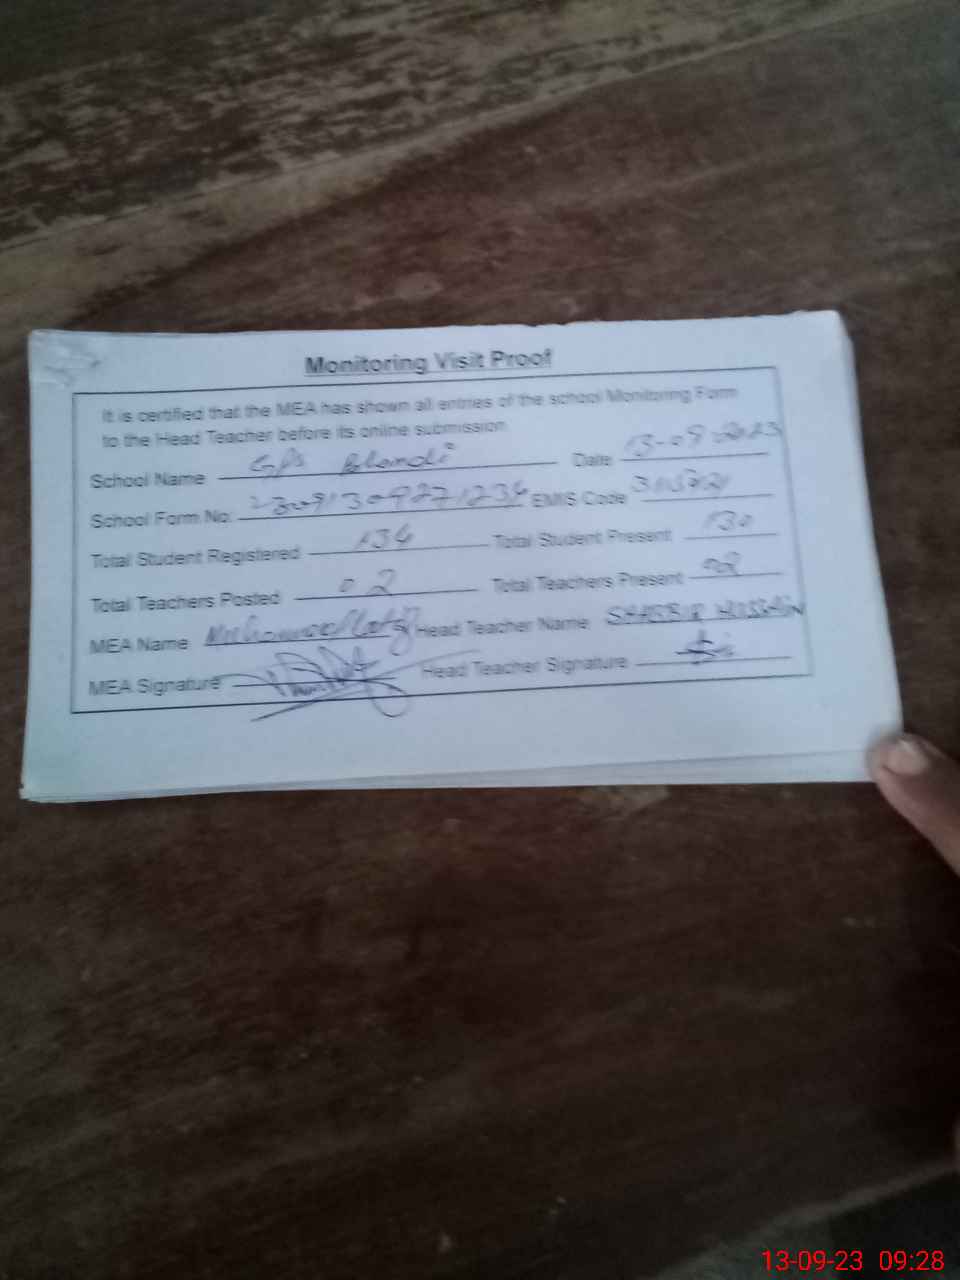 Monitoring Visit Proof
It is certified that the MEA has shown all entries of the school Monitoring Form
to the Head Teacher before its online submission
School Name GPS Date 13-09-2023
School Form No: EMIS Code
Total Student Registered 134 Total Student Present 130
Total Teachers Posted 02 Total Teachers Present 02
MEA Name Muhammad Head Teacher Name SHABBIR HUSSAIN
MEA Signature Head Teacher Signature
13-09-23 09:28